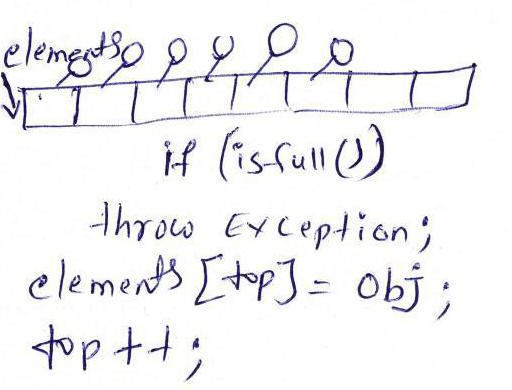 elements
if (isfull())
throw Exception;
elements [top] = obj;
top ++;